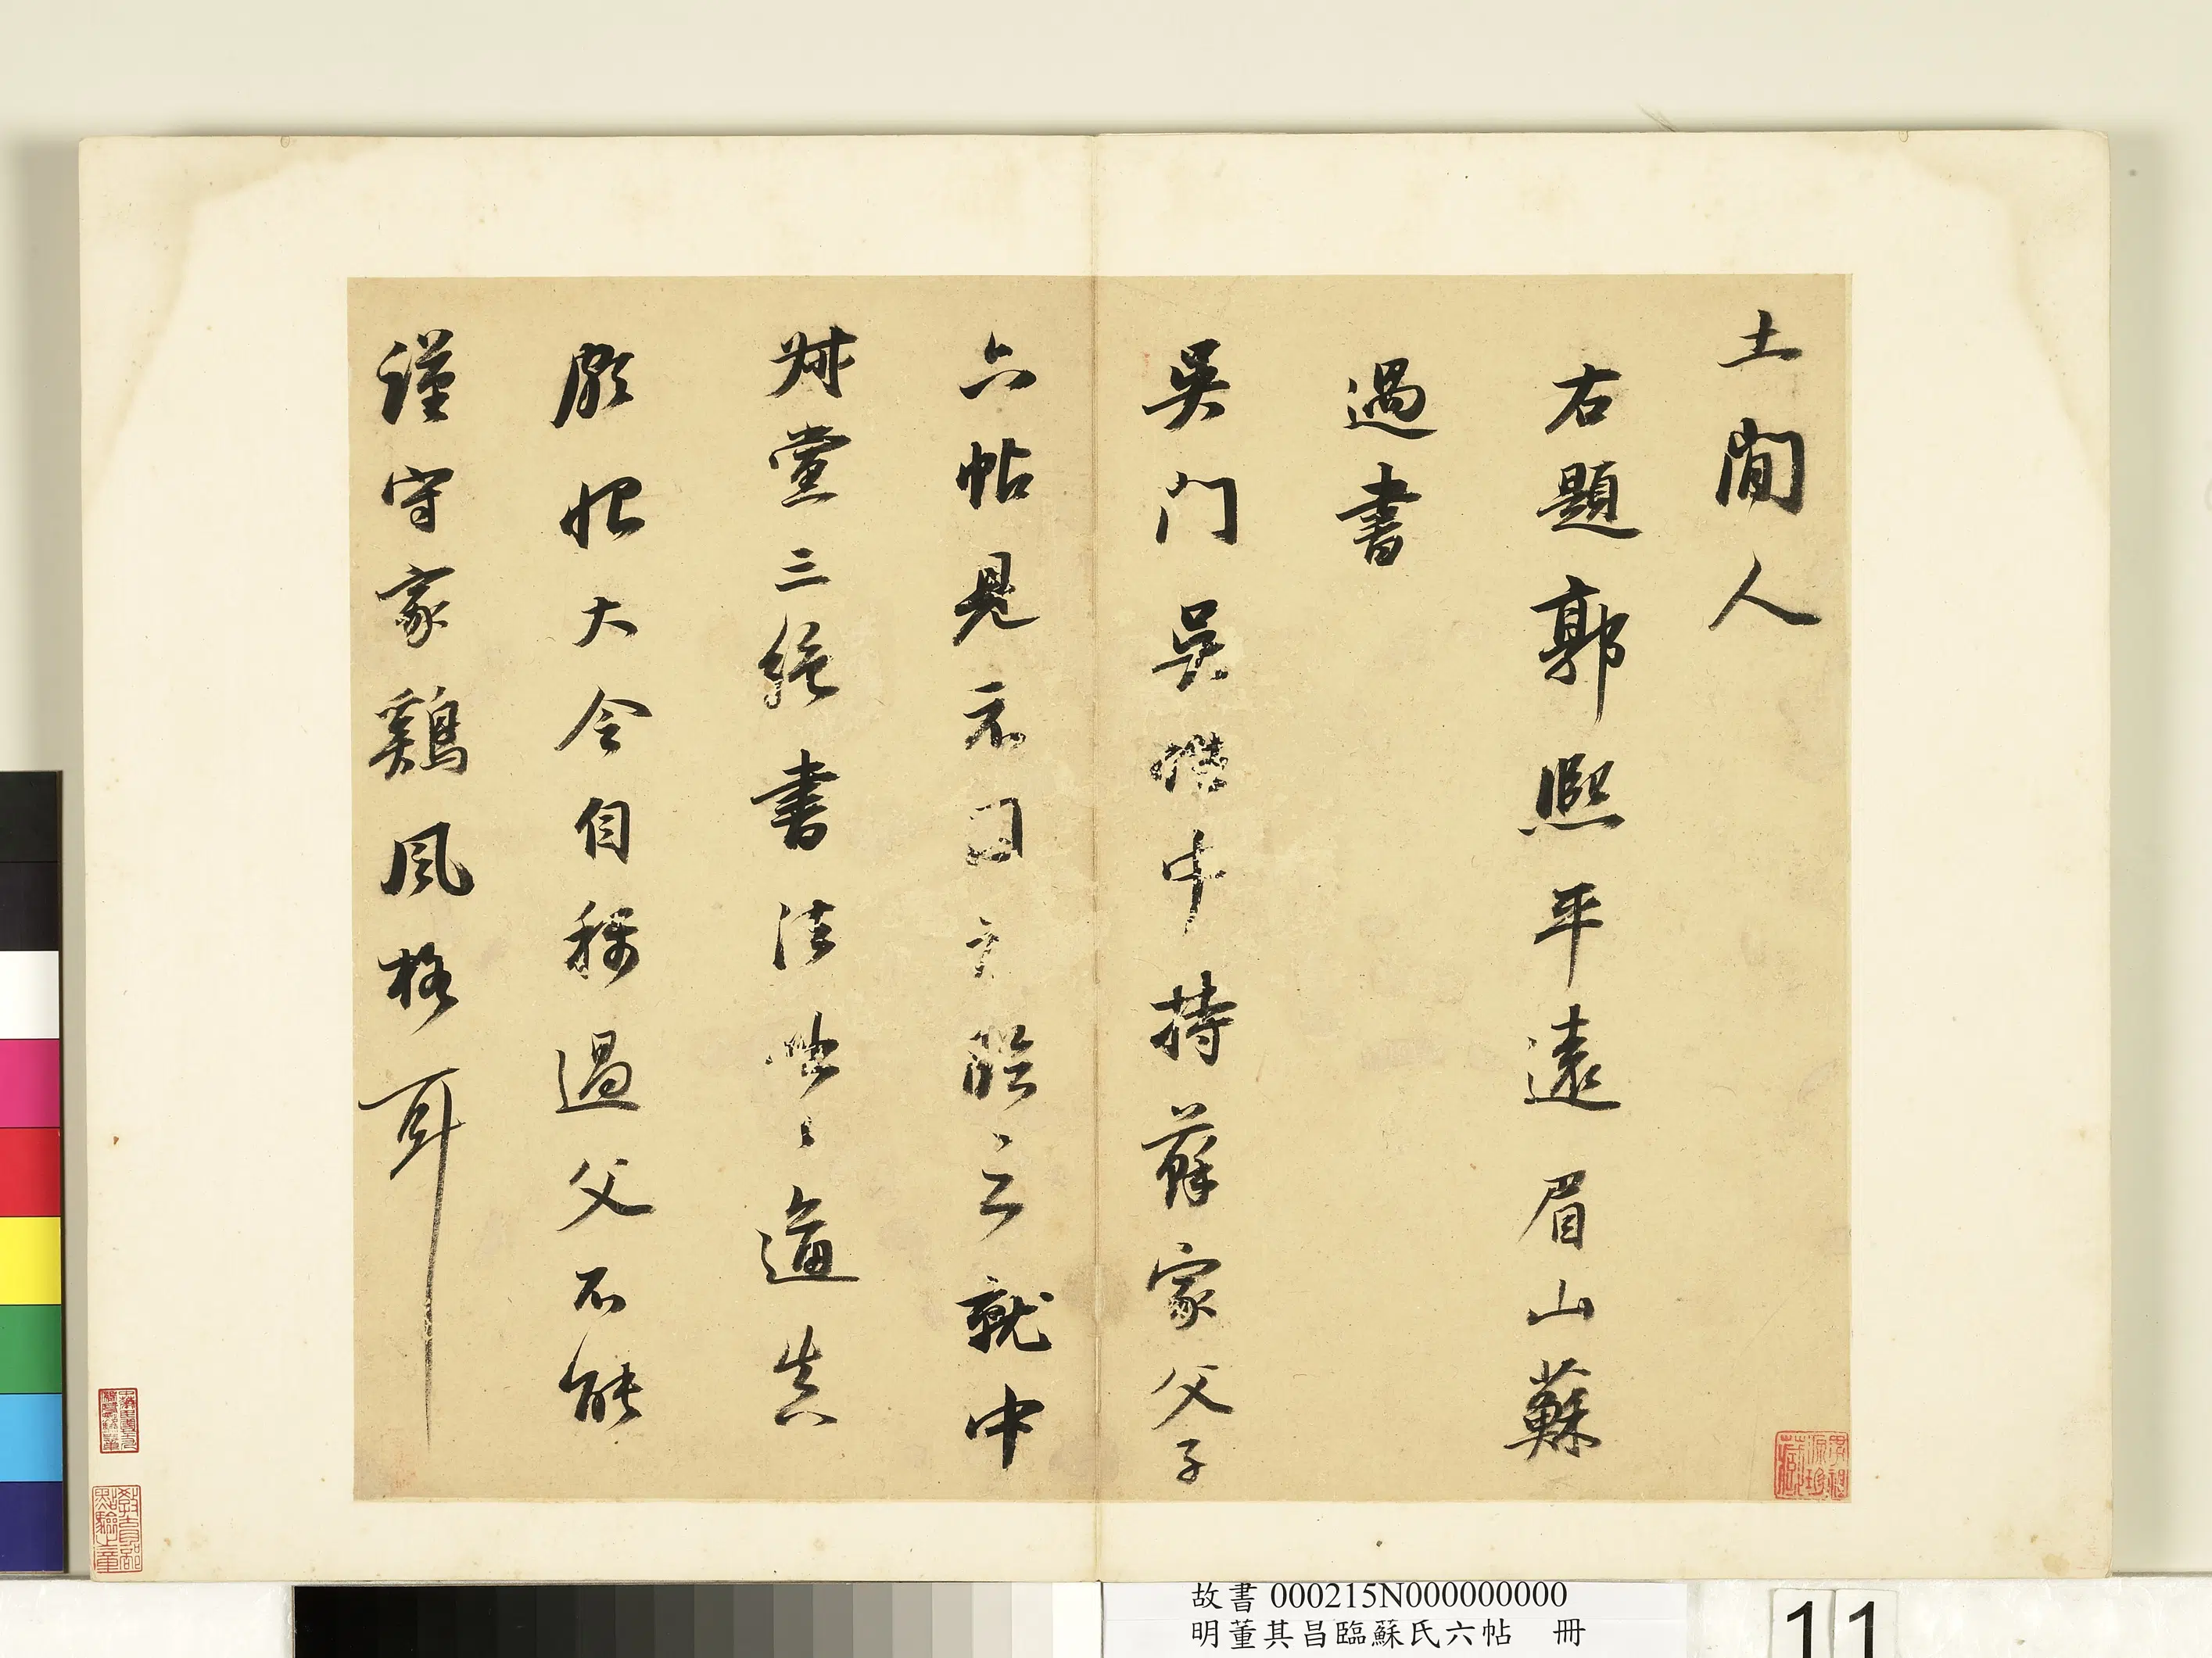 土間人
右題郭熙平遠眉山蘇
過書
吳門吳 中持蘇家父子
六帖見示因為臨之就中
叔黨三絕書法咄咄逼真
頗怪大令自稱過父不能
謹守家鷄風格耳
故書 000215N000000000
明董其昌臨蘇氏六帖 冊
11